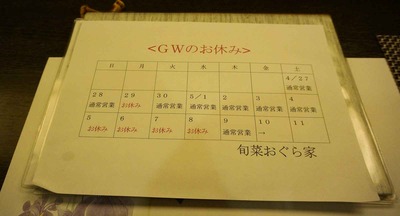 <GWのお休み>
日 月 火 水 木 金 土
4/27
通常営業
28 29 30 5/1 2 3 4
通常営業 お休み 通常営業 通常営業 通常営業 通常営業 通常営業
5 6 7 8 9 10 11
お休み お休み お休み お休み 通常営業 →
旬菜おぐら家